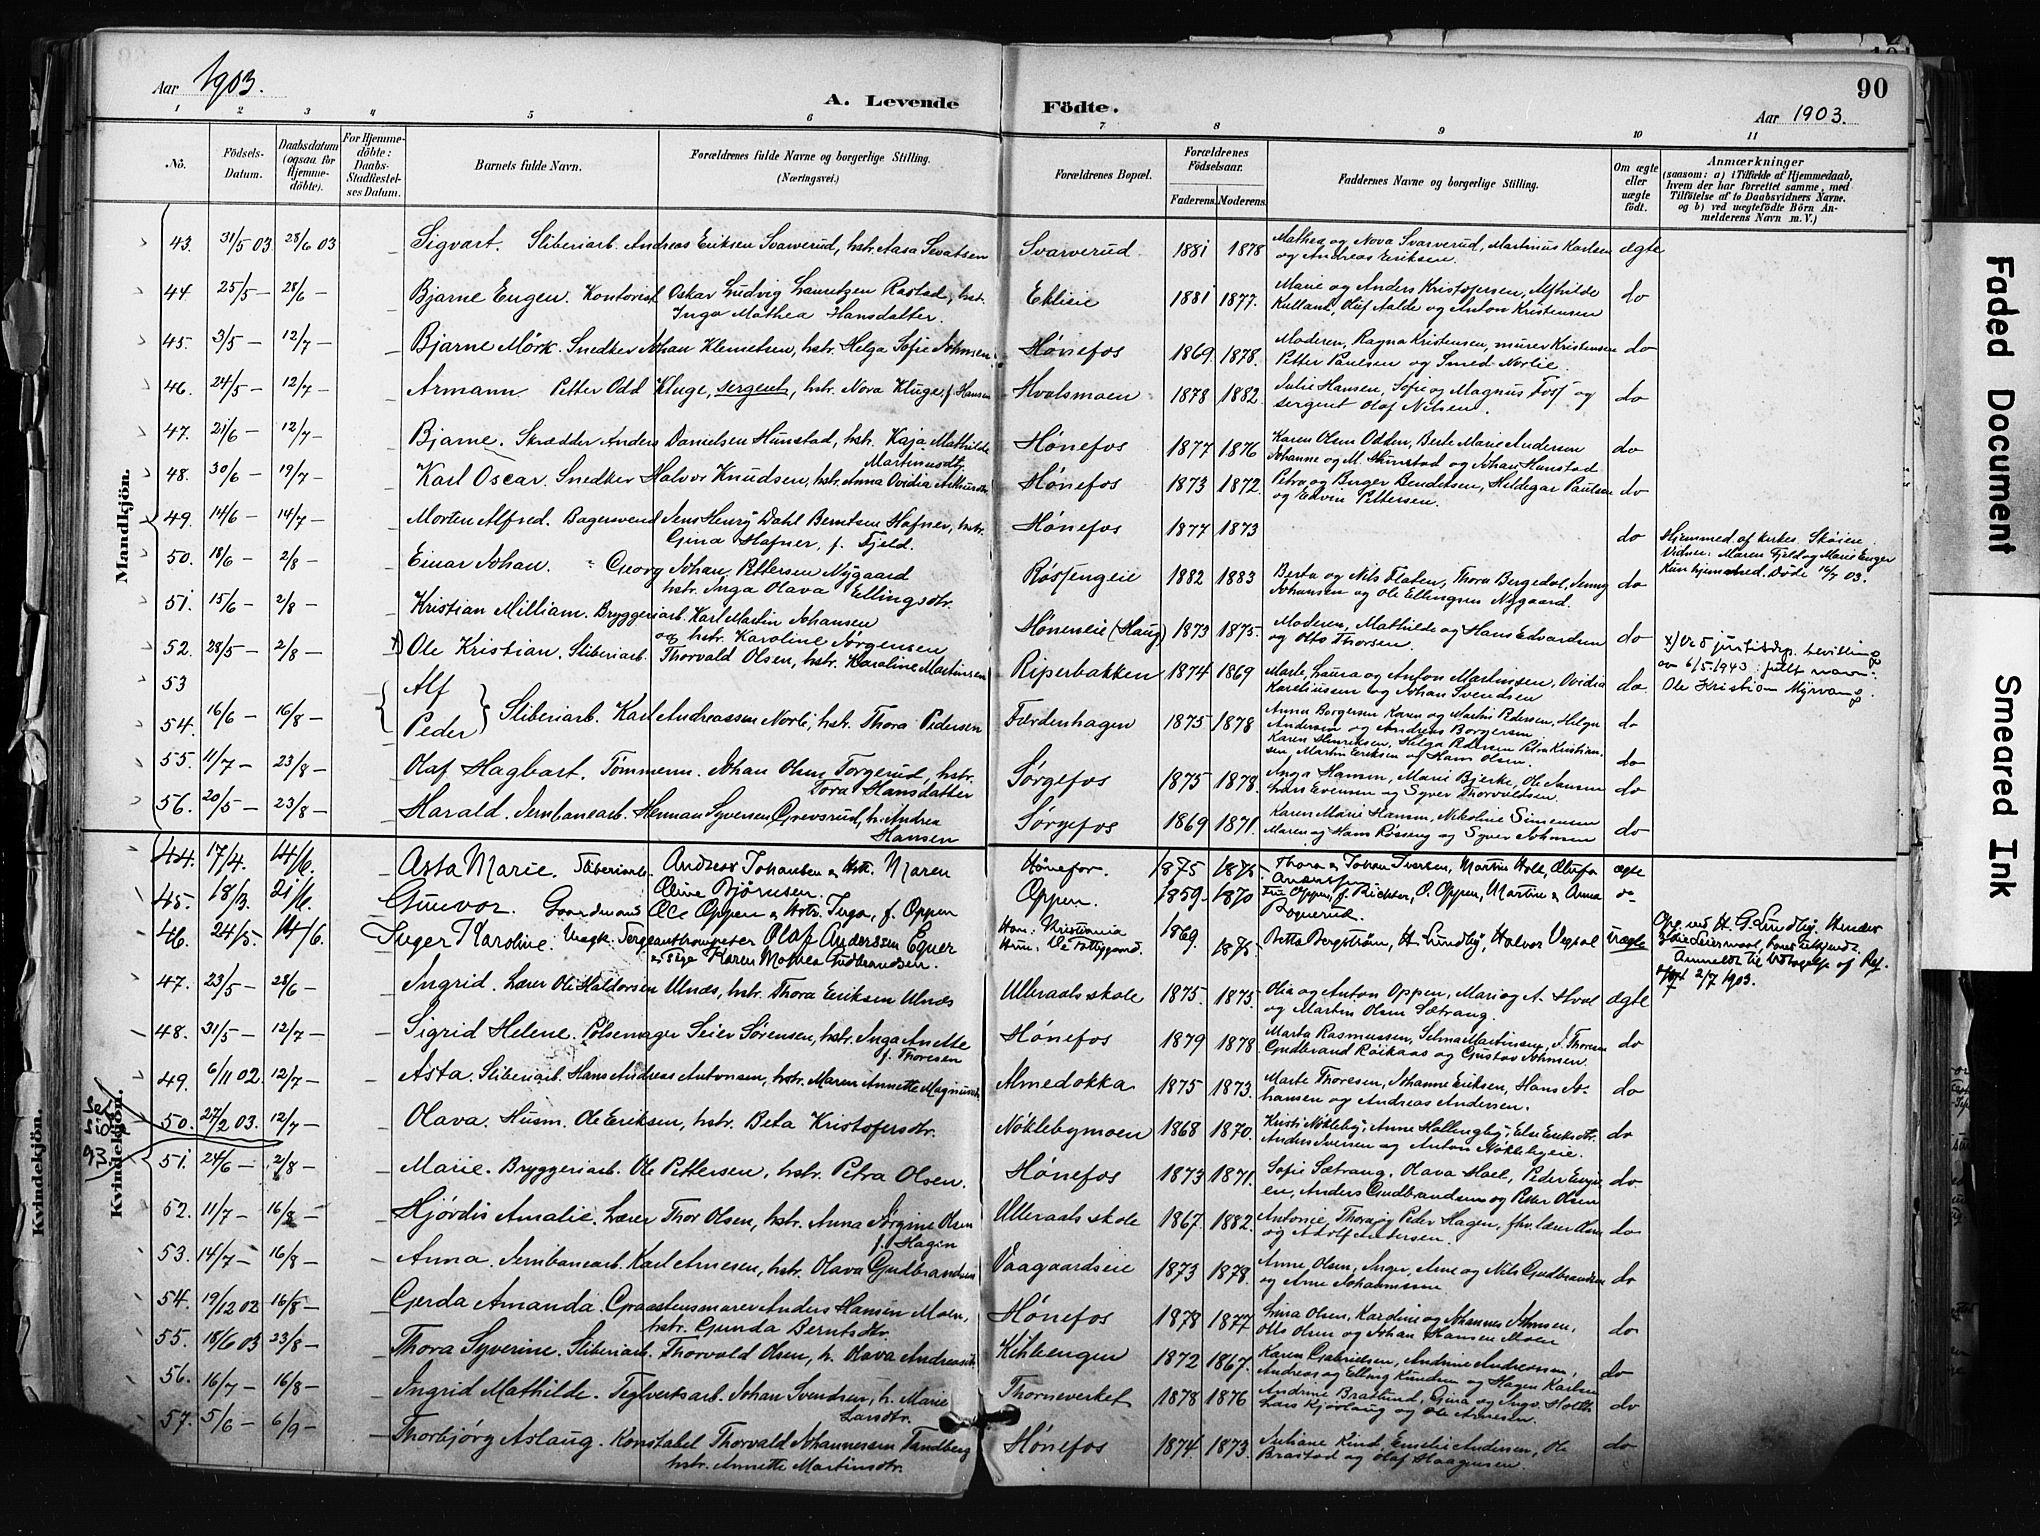 Aar 1903.
A. Levende Födte.
90
Aar 1903.
1 2 3 4 5 6 7 8 9 10 11
No.
Födsels-Datum.
Daabsdatum (ogsaa for Hjemmedöbte).
For Hjemmedöbte: Daabs-Stadfæstelses Datum.
Barnets fulde Navn.
Forældrenes fulde Navne og borgerlige Stilling. (Næringsvei.)
Forældrenes Bopæl.
Forældrenes Födselsaar.
Faderens. Moderens.
Faddernes Navne og borgerlige Stilling.
Om ægte eller uægte födt.
Anmærkninger
(saasom: a) i Tilfælde af Hjemmedaab, hvem der har forrettet samme, med Tilföielse af to Daabsvidners Navne. og b) ved uægtefödte Börn Anmelderens Navn m. V.)
Mandkjön.
43. 31/5 03 28/6 03 – Sigvart. Sliberiarb. Andreas Eriksen Svarverud, hstr. Aasa Sevatsen Svarverud 1881 1878 Mathea og Nova Svarverud, Martinus Karlsen og Andreas Eriksen. ægte
44. 25/5 – 28/6 – – Bjarne Eugen. Kontorist Oskar Ludvig Lauritzen Rastad, hst. Inga Mathea Hansdatter. 1881 1877. Marie og Anders Kristofersen, Alfhilde Olaf Aalde og Anton Kristensen do
45. 3/5 – 12/7 – – Bjarne Mörk. Snedker Johan Klemetsen, hstr. Helga Sofie Johnsen. Hónefos 1869 1878. Moderen, Ragna Kristensen, murer Kristensen Petter Paulsen og Smed Norlie. do
46. 24/5 – 12/7 – – Armann. Petter Odd Kluge, sergent, hstr. Nova Kluge, f. Hansen Hvalsmoen 1878 1882. Julie Hansen, Sofie og Magnus Foss og sergent Olaf Nilsen. do
47. 21/6 – 12/7 – – Bjarne. Skrædder Anders Danielsen Hunstad, hstr. Kaja Mathilde Martinusdtr. Hónefos 1877 1876 Karen Olsen Odden, Berte Marie Andersen Johanne og M. Hunstad og Johan Hunstad do
48. 30/6 – 19/7 – – Karl Oscar. Snedker Halvor Knudsen, hstr. Anna Ovidia Hónefos 1873 1872. Petra og Birger Bendiksen, Hildegar Paulsen og Edvin Pettersen. do
49. 14/6 – 14/7 – – Morten Alfred. Bagersvend Jens Henry Dahl Berntsen Hafner, hstr. Gina Hafner, f. Fjeld. Hónefos 1877 1873 do Hjemmed. af kirkes. Skóien Vidner: Maren Fjeld og Marie Enger Kun hjemmed. Döde 16/7 03.
50. 18/6 – 2/8 – – Einar Johan. Georg Johan Pettersen Nygaard hstr. Inga Olava Ellingsdtr. 1882 1883 Berta og Nils Flaten, Thora Bergedal, Jenny Johansen og Ole Ellingsen Nygaard. do
51. 15/6 – 2/8 – – Kristian William. Bryggeriarb. Karl Martin Johansen og hstr. Karoline Jørgensen Hóneneie (Haug) 1873 1875. Moderen, Mathilde og Hans Edvardsen og Otto Thorsen. do
52. 28/5 – 2/8 – x) Ole Kristian. Sliberiarb. Thorvald Olsen, hstr. Karoline Martinsen Riperbakken 1874 1869 Marte, Laura og Anton Martinsen, Ovidia Kareliussen og Johan Svendsen do x) Ved justitsdep. bevilling av 6/5 1943: fullt navn: Ole Kristian Myrvang
53 Alf
54. 16/6 – 16/8 – Peder Sliberiarb. Karl Andreassen Norli, hstr. Thora Pedersen Færdenhagen 1875 1878 Anna Borgersen Karen og Martin Pedersen, Helga Andersen og Andreas Borgersen Karen Henriksen, Helga Pedersen Petra Kristiansen, Martin Eriksen og Hans Olsen. do do
55. 11/7 – 23/8 – – Olaf Hagbart. Tømmerm. Johan Olsen Torgerud, hstr. Tora Hansdatter Sørgefos 1875 1878. Inga Hansen, Marie Bjerke, Ole Jansen Lars Evensen og Syver Thorvaldsen do
56. 20/5 – 23/8 – – Harald. Jernbanearb. Herman Syversen Grevsrud, h. Andrea Hansen Sørgefos 1869 1871. Karen Marie Hansen, Nikoline Simensen Maren og Hans Røseng og Syver Johnsen do
Kvindekjön.
44. 17/4. 14/6. – Asta Marie. Sliberiarb. Andreas Johansen & Hst. Maren Oline Bjørnsen. Hónefos. 1875 1875. Thora & Johan Iversen, Martin Hole, Olufa Andersen ægte
45. 18/3. 21/6. – Gunvor. Gaardmand Ole Oppen & Hstr. Inga, f. Oppen Oppen. 1859. 1870 Fru Oppen, f. Richter, O. Oppen, Martin & Anna do
46. 24/5. 14/6. – Inger Karoline. Ungk. Sergeanttrompeter Olaf Anderssen Egner & Pige Karen Mathea Gudbrandsen. Han: Kristiania Hun: 1869 1875 Betta Bergstrøm, H. Lundby, Halvor Vegsal uægte Opg. ved H. G. Lundby. Under Anmeldt til Udtagelse af Reg. 2/7 1903.
47. 23/5 – 28/6 – Ingrid. Lærer Ole Haldorsen Ulnæs, hstr. Thora Eriksen Ulnæs Ulleraals skole 1875. 1875 Olia og Anton Oppen, Mari og A. Hval og Martin Olsen Sætrang. ægte
48. 31/5 – 12/7 – – Sigrid Helene. Pølsemager Seier Sørensen, hstr. Inga Anette f. Thoresen Hónefos 1879 1878 Marta Rasmussen, Selma Martinsen, S. Thoresen Gudbrand Røikaas og Gustav Johnsen. do
49. 6/11 02. 12/7 – – Asta. Sliberiarb. Hans Andreas Antonsen, hstr. Maren Annette Magnusdtr. Almedokka 1875 1873. Marte Thoresen, Johanne Eriksen, Hans Johansen og Andreas Andersen. do
50. 27/2 03. 12/7 – – Olava. Husm. Ole Eriksen, hstr. Beta Kristofersdtr. Nøklebymoen 1868 1870. Kristi Nøkleby, Anne Hallingby, Else Eriksdtr. Anders Iversen og Anton Nøklebyeie. do
51. 24/6 – 2/8 – – Marie. Bryggeriarb. Ole Pettersen, hstr. Petra Olsen. Hónefos 1873 1871. Sofie Sætrang, Olava Hael, Peder Anders Gudbrandsen og Peter Olsen do
52. 11/7 – 16/8 – – Hjørdis Amalie. Lærer Thor Olsen, hstr. Anna Jørgine Olsen f. Hagen Ulleraals skole 1867. 1882. Antonie, Thora og Peder Hagen, fhv. lærer og Adolf Andersen. do
53. 14/7 – 16/8 – – Anna. Jernbanearb. Karl Arnesen, hstr. Olava Gudbrandsen Vaagaardseie 1873 1878. Anne Olsen, Inger, Arne og Nils Gudbrandsen og Arne Johannessen do
54. 19/12 02 16/8 – – Gerda Amanda. Graastensmurer Anders Hansen Moen, hstr. Gunda Berntsdtr. Hónefos 1878 1877 Lina Olsen, Karoline og Johannes Johnsen, Otto Olsen og Johan Hansen Moen do
55. 18/6 03 23/8 – – Thora Syverine. Sliberiarb. Thorvald Olsen, h. Olava Andreasdtr. 1872 1867. Karen Gabrielsen, Andrine Andreassen, Andreas og Elling Knudsen og Hagen Karlsen do
56. 16/7 – 16/8 – – Ingrid Mathilde. Teglverksarb. Johan Svendsen, h. Marie Larsdtr. Thorneverket 1878 1876 Andrine Braastad, Gina og Ingv. Holth Lars Kjørlaug og Ole Arnesen. do
57. 5/6 – 6/9 – – Thorbjörg Aslaug. Konstabel Thorvald Johannessen Tandberg hstr. Annette Martinsdtr. Hónefos 1874. 1873. Juliane Lind, Emelie Andersen, Ole Braastad og Olaf Haagensen. do
Kvindekjön.
Faded Document
Smeared Ink